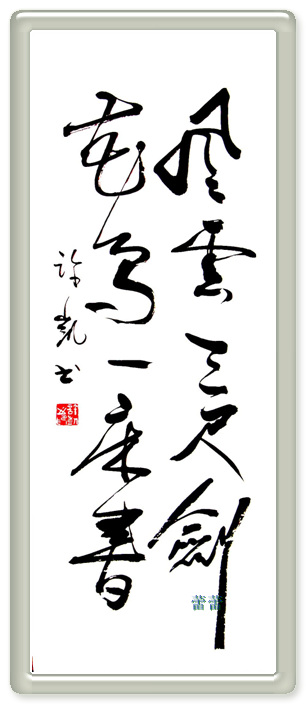 風雲三尺劍
花鳥一床書
許凱书